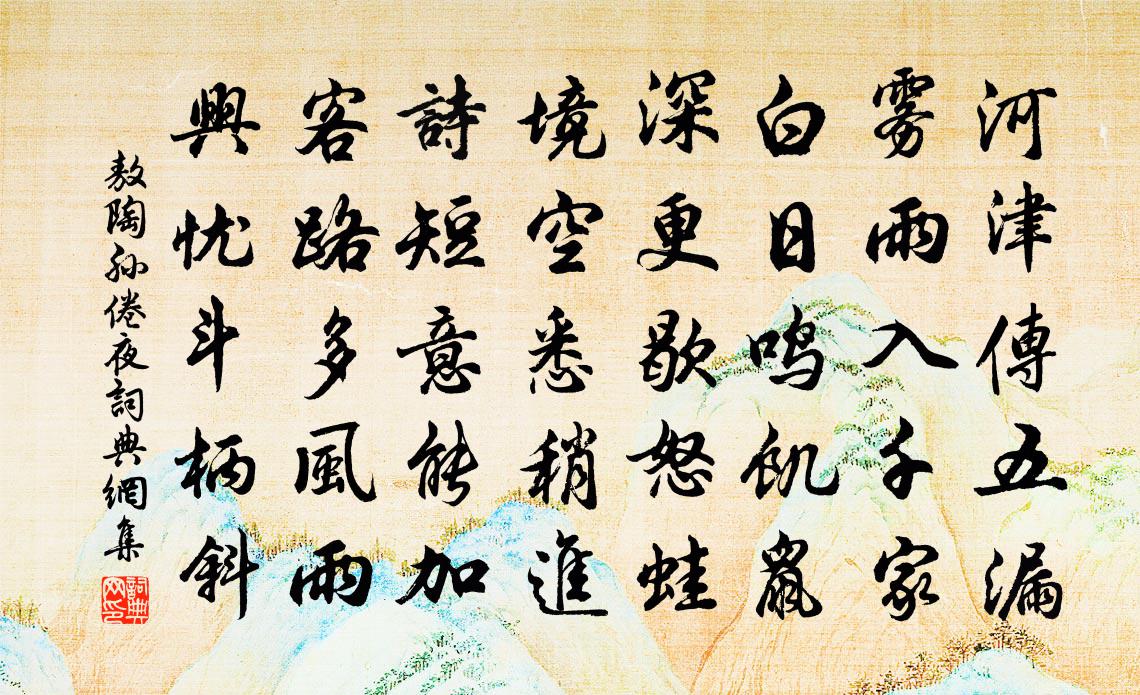 河津傳五漏
雾雨入千家
白日鸣飢鼠
深更歇怒蛙
境空悉稍進
詩短意能加
客路多風雨
興忧斗柄斜
敖陶孙倦夜詞典網集
詞典網印